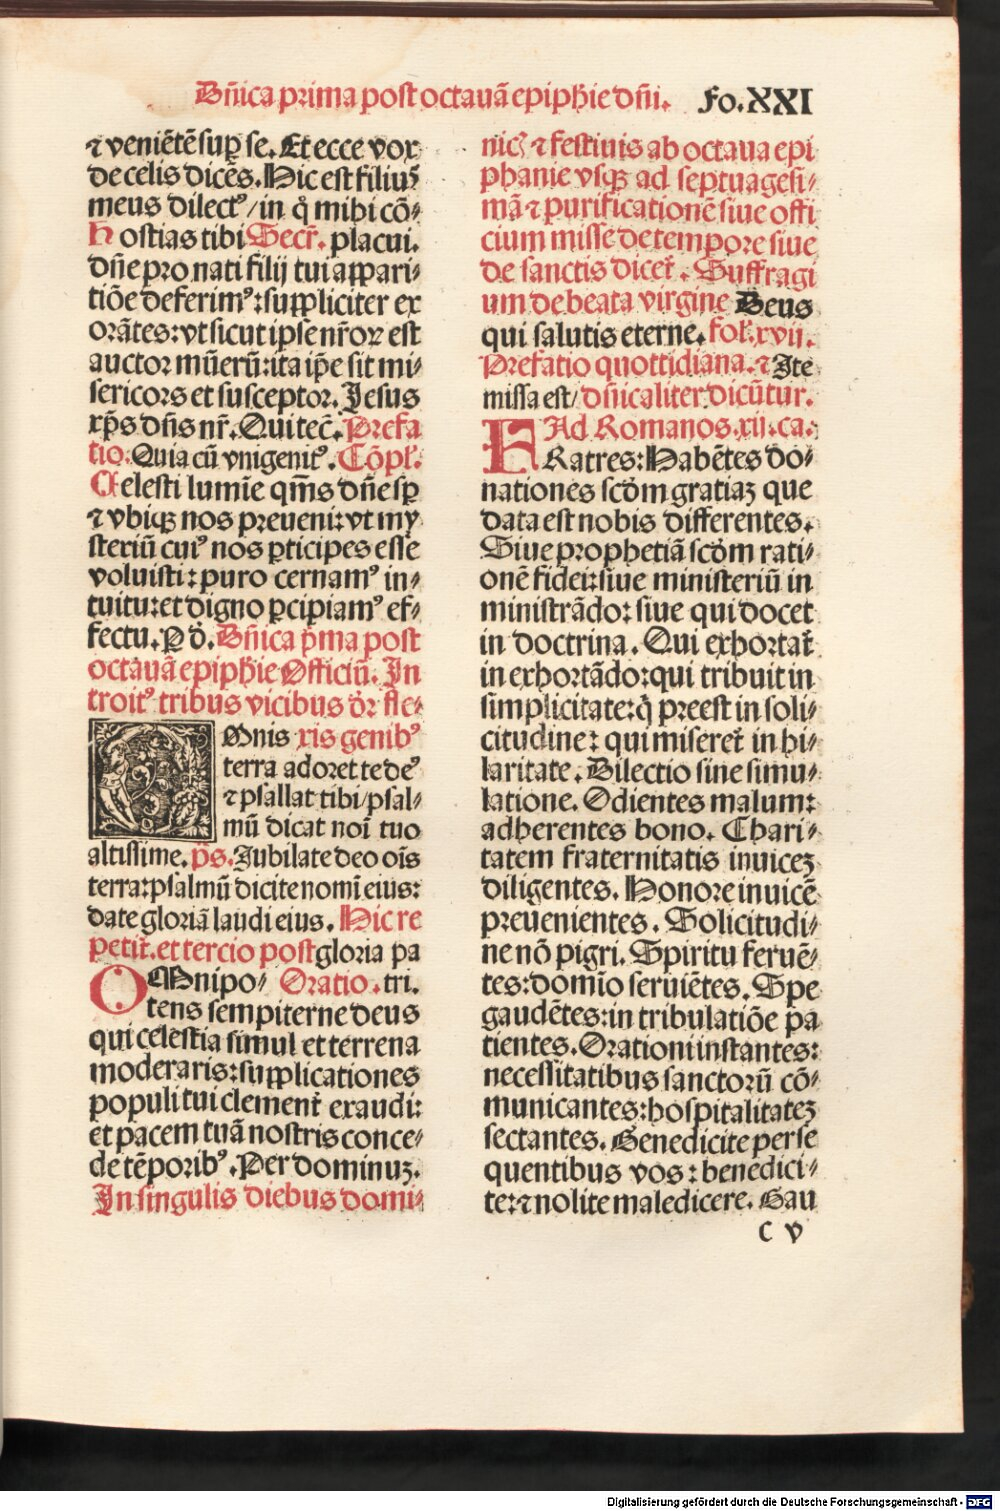 Dñica prima post octauã epiphie dñi. Fo.XXI
⁊ veniẽtẽ suꝑ se. Et ecce vox
de celis dicẽs. Hic est filiusꝰ
meus dilectꝰ/in q̊ mihi cõ⸗
Hostias tibi Secr̃. placui.
dñe pro nati filij tui appari⸗
tiõe deferimꝰ: suppliciter ex
orãtes: vt sicut ipse nr̃oꝝ est
auctor mũerũ: ita ip̃e sit mi⸗
sericors et susceptor. Jesus
xp̃s dñs nr̃. Qui tec̃. Prefa
tio. Quia cũ vnigenitꝰ. Cõpl̃.
Celesti lumĩe qm̃s dñe sꝑ
⁊ vbiqꝫ nos preueni: vt my
steriũ cuiꝰ nos ꝑticipes esse
voluisti: puro cernamꝰ in⸗
tuitu: et digno ꝑcipiamꝰ ef⸗
fectu. P d̃. Dñica p̃ma post
octauã epiphie Officiũ. In
troitꝰ tribus vicibus d̃r fle⸗
Omnis xis genibꝰ
terra adoret te deꝰ
⁊ psallat tibi/psal⸗
mũ dicat noĩ tuo
altissime. p̃s. Iubilate deo oĩs
terra: psalmũ dicite nomĩ eius:
date gloriã laudi eius. Hic re
petit̃. et tercio post gloria pa
OMnipo⸗ Oratio. tri.
tens sempiterne deus
qui celestia simul et terrena
moderaris: supplicationes
populi tui clement̃ exaudi:
et pacem tuã nostris conce⸗
de tẽporibꝰ. Per dominuꝫ.
In singulis diebus domi⸗
nicꝭ ⁊ festiuis ab octaua epi
phanie vsqꝫ ad septuagesi⸗
mã ⁊ purificationẽ siue offi
cium misse de tempore siue
de sanctis dicet̃. Suffragi
um de beata virgine Deus
qui salutis eterne. fol. xvii.
Prefatio quottidiana. ⁊ Ite
missa est/ dñicaliter dicũtur.
Ad Romanos. xii. ca.
FRatres: Habẽtes do⸗
nationes scd̃m gratiaꝫ que
data est nobis differentes.
Siue prophetiã scd̃m rati⸗
onẽ fidei: siue ministeriũ in
ministrãdo: siue qui docet
in doctrina. Qui exhortat̃
in exhortãdo: qui tribuit in
simplicitate: q̃ preest in soli⸗
citudine: qui miseret̃ in hi⸗
laritate. Dilectio sine simu⸗
latione. Odientes malum:
adherentes bono. Chari⸗
tatem fraternitatis inuiceꝫ
diligentes. Honore inuicẽ
preuenientes. Solicitudi⸗
ne nõ pigri. Spiritu feruẽ⸗
tes: domĩo seruiẽtes. Spe
gaudẽtes: in tribulatiõe pa
tientes. Orationi instantes:
necessitatibus sanctorũ cõ⸗
municantes: hospitalitateꝫ
sectantes. Benedicite perse
quentibus vos: benedici⸗
te: ⁊ nolite maledicere. Gau
C v
Digitalisierung gefördert durch die Deutsche Forschungsgemeinschaft - DFG